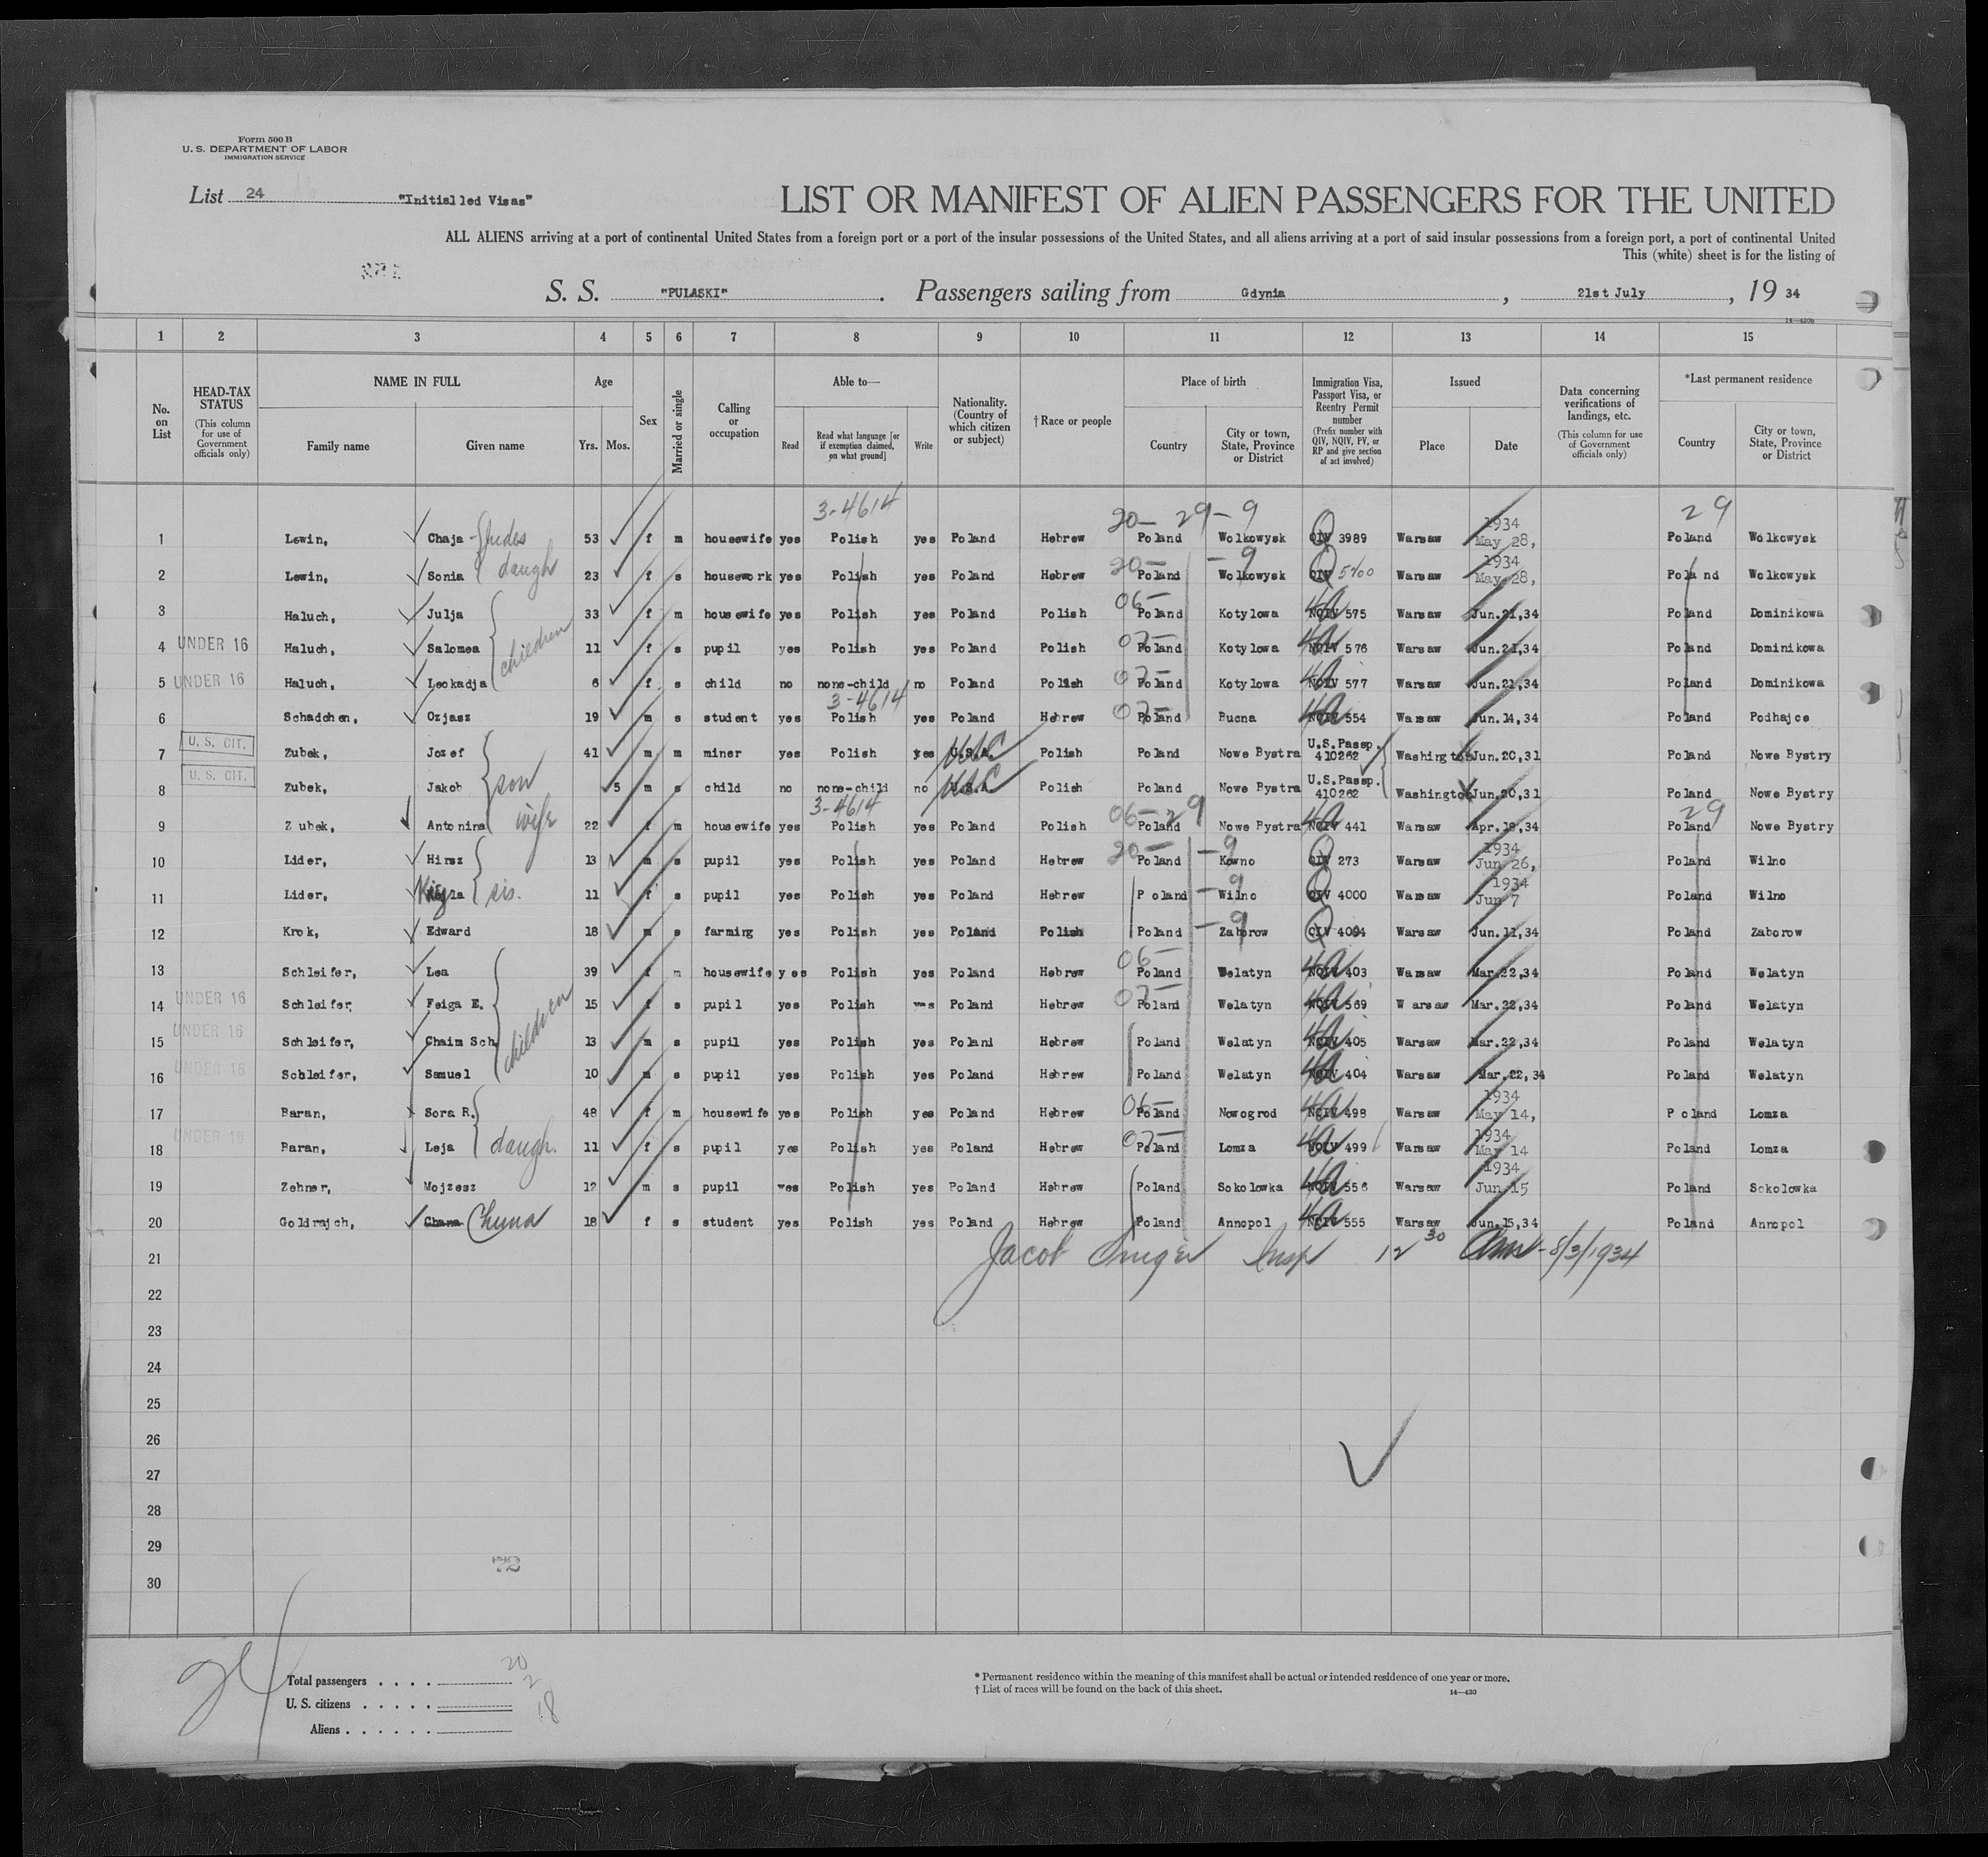 Form 500 B
U. S. DEPARTMENT OF LABOR
IMMIGRATION SERVICE
List 24 "Initialled Visas"
LIST OR MANIFEST OF ALIEN PASSENGERS FOR THE UNITED
ALL ALIENS arriving at a port of continental United States from a foreign port or a port of the insular possessions of the United States, and all aliens arriving at a port of said insular possessions from a foreign port, a port of continental United
This (white) sheet is for the listing of
S. S. "PULASKI". Passengers sailing from Gdynia, 21st July, 19 34
1 2 3 4 5 6 7 8 9 10 11 12 13 14 15
No. on List
HEAD-TAX STATUS (This column for use of Government officials only)
NAME IN FULL Family name Given name
Age Yrs. Mos.
Sex
Married or single
Calling or occupation
Able to— Read Read what language [or if exemption claimed, on what ground] Write
Nationality. (Country of which citizen or subject)
†Race or people
Place of birth Country City or town, State, Province or District
Immigration Visa, Passport Visa, or Reentry Permit number (Prefix number with QIV, NQIV, PV, or RP and give section of act involved)
Issued Place Date
Data concerning verifications of landings, etc. (This column for use of Government officials only)
*Last permanent residence Country City or town, State, Province or District
3-4614 20- 29-9 29
1 Lewin, Chaja 53 f m housewife yes Polish yes Poland Hebrew Poland Wolkowysk QIV 3989 Warsaw 1934 May 28, Poland Wolkowysk
2 Lewin, Sonia daugh 23 f s housework yes Polish yes Poland Hebrew 20- Poland -9 Wolkowysk QIV 5700 Warsaw 1934 May 28, Poland Wolkowysk
3 Haluch, Julja 33 f m housewife yes Polish yes Poland Polish 06- Poland Kotylowa NQIV 575 Warsaw Jun.21,34 Poland Dominikowa
4 UNDER 16 Haluch, Salomea children 11 f s pupil yes Polish yes Poland Polish 07- Poland Kotylowa NQIV 576 Warsaw Jun.21,34 Poland Dominikowa
5 UNDER 16 Haluch, Leokadja 6 f s child no none-child no Poland Polish 07- Poland Kotylowa NQIV 577 Warsaw Jun.21,34 Poland Dominikowa
3-4614
6 Schadchen, Ozjasz 19 m s student yes Polish yes Poland Hebrew 07- Poland Bucna NQIV 554 Warsaw Jun.14,34 Poland Podhajce
7 U. S. CIT. Zubek, Jozef 41 m m miner yes Polish yes U.S.A. USC Polish Poland Nowe Bystra U.S.Passp. 410262 Washington Jun.20,31 Poland Nowe Bystry
8 U. S. CIT. Zubek, Jakob son 5 m s child no none-child no U.S.A. USC Polish Poland Nowe Bystra U.S.Passp. 410262 Washington Jun.20,31 Poland Nowe Bystry
3-4614
9 Zubek, Antonina wife 22 f m housewife yes Polish yes Poland Polish 06-29 Poland Nowe Bystra NQIV 441 Warsaw Apr.19,34 29 Poland Nowe Bystry
10 Lider, Hirsz 13 m s pupil yes Polish yes Poland Hebrew 20- Poland -9 Kowno QIV 273 Warsaw 1934 Jun 26, Poland Wilno
11 Lider, sis. 11 f s pupil yes Polish yes Poland Hebrew Poland -9 Wilno QIV 4000 Warsaw 1934 Jun 7 Poland Wilno
12 Krok, Edward 18 m s farming yes Polish yes Poland Polish Poland -9 Zaborow QIV 4094 Warsaw Jun.11,34 Poland Zaborow
13 Schleifer, Lea 39 f m housewife yes Polish yes Poland Hebrew 06- Poland Welatyn NQIV 403 Warsaw Mar.22,34 Poland Welatyn
14 UNDER 16 Schleifer Feiga E. children 15 f s pupil yes Polish yes Poland Hebrew 07- Poland Welatyn NQIV 569 Warsaw Mar.22,34 Poland Welatyn
15 UNDER 16 Schleifer, Chaim Sch 13 m s pupil yes Polish yes Poland Hebrew Poland Welatyn NQIV 405 Warsaw Mar.22,34 Poland Welatyn
16 UNDER 16 Schleifer, Samuel 10 m s pupil yes Polish yes Poland Hebrew Poland Welatyn NQIV 404 Warsaw Mar.22,34 Poland Welatyn
17 Baran, Sora R. 48 f m housewife yes Polish yes Poland Hebrew 06- Poland Nowogrod NQIV 498 Warsaw 1934 May 14, Poland Lomza
18 UNDER 16 Baran, Leja daugh. 11 f s pupil yes Polish yes Poland Hebrew 07- Poland Lomza NQIV 499 Warsaw 1934 May 14 Poland Lomza
19 Zehner, Mojzesz 12 m s pupil yes Polish yes Poland Hebrew Poland Sokolowka NQIV 556 Warsaw 1934 Jun 15 Poland Sokolowka
20 Goldrajch, Chana Chuna 18 f s student yes Polish yes Poland Hebrew Poland Annopol NQIV 555 Warsaw Jun.15,34 Poland Annopol
21 Jacob Insp 12 30 8/3/1934
22
23
24
25
26
27
28
29
72
30
Total passengers . . . . 20
U. S. citizens . . . . . 2
Aliens . . . . . . 18
* Permanent residence within the meaning of this manifest shall be actual or intended residence of one year or more.
† List of races will be found on the back of this sheet. 14—430